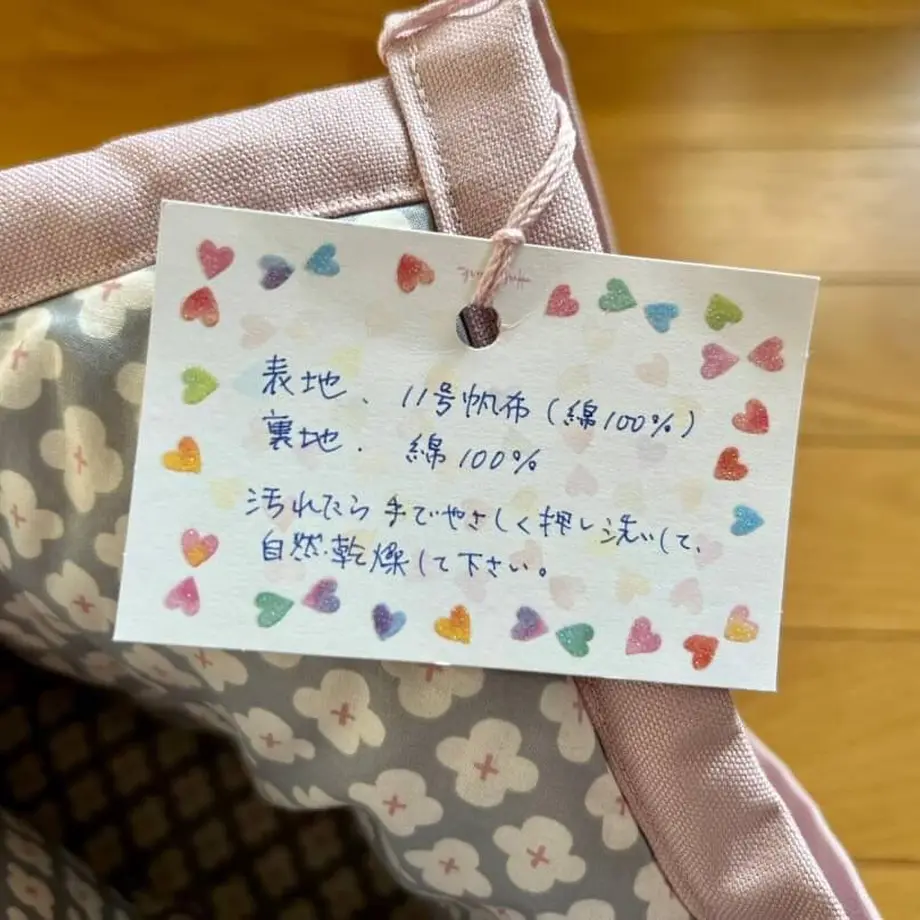 表地、11号帆布(綿100%)
裏地.綿100%
汚れたら手でやさしく押し洗いして、
自然乾燥して下さい。